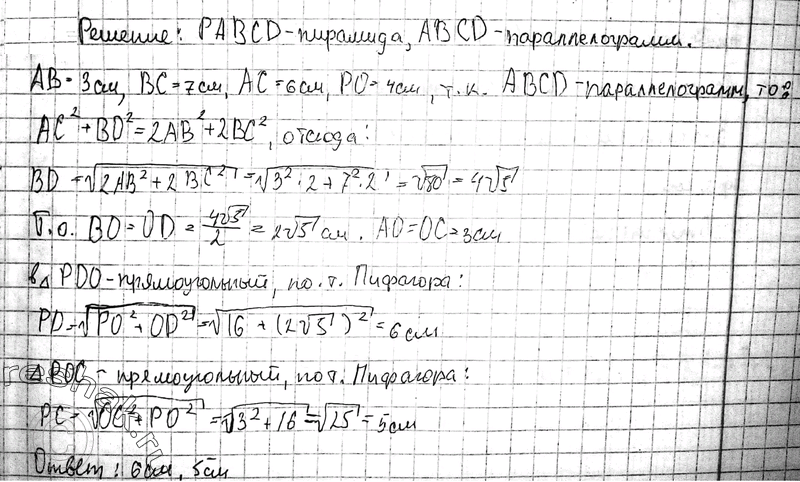 Решение: PABCD-пирамида, ABCD-параллелограмм.
AB=3см, BC=7см, AC=6см, PO=4см, т.к. ABCD-параллелограмм, то:
AC²+BD²=2AB²+2BC², отсюда:
BD=√(2AB²+2BC²)=√(3²·2+7²·2)=√80=4√5
Т.о. BO=OD=4√5/2=2√5 см. AO=OC=3см
в △PDO-прямоугольный, по т. Пифагора:
PD=√(PO²+OD²)=√(16+(2√5)²)=6см
△POC-прямоугольный, по т. Пифагора:
PC=√(OC²+PO²)=√(3²+16)=√25=5см
Ответ: 6см, 5см
reshak.ru